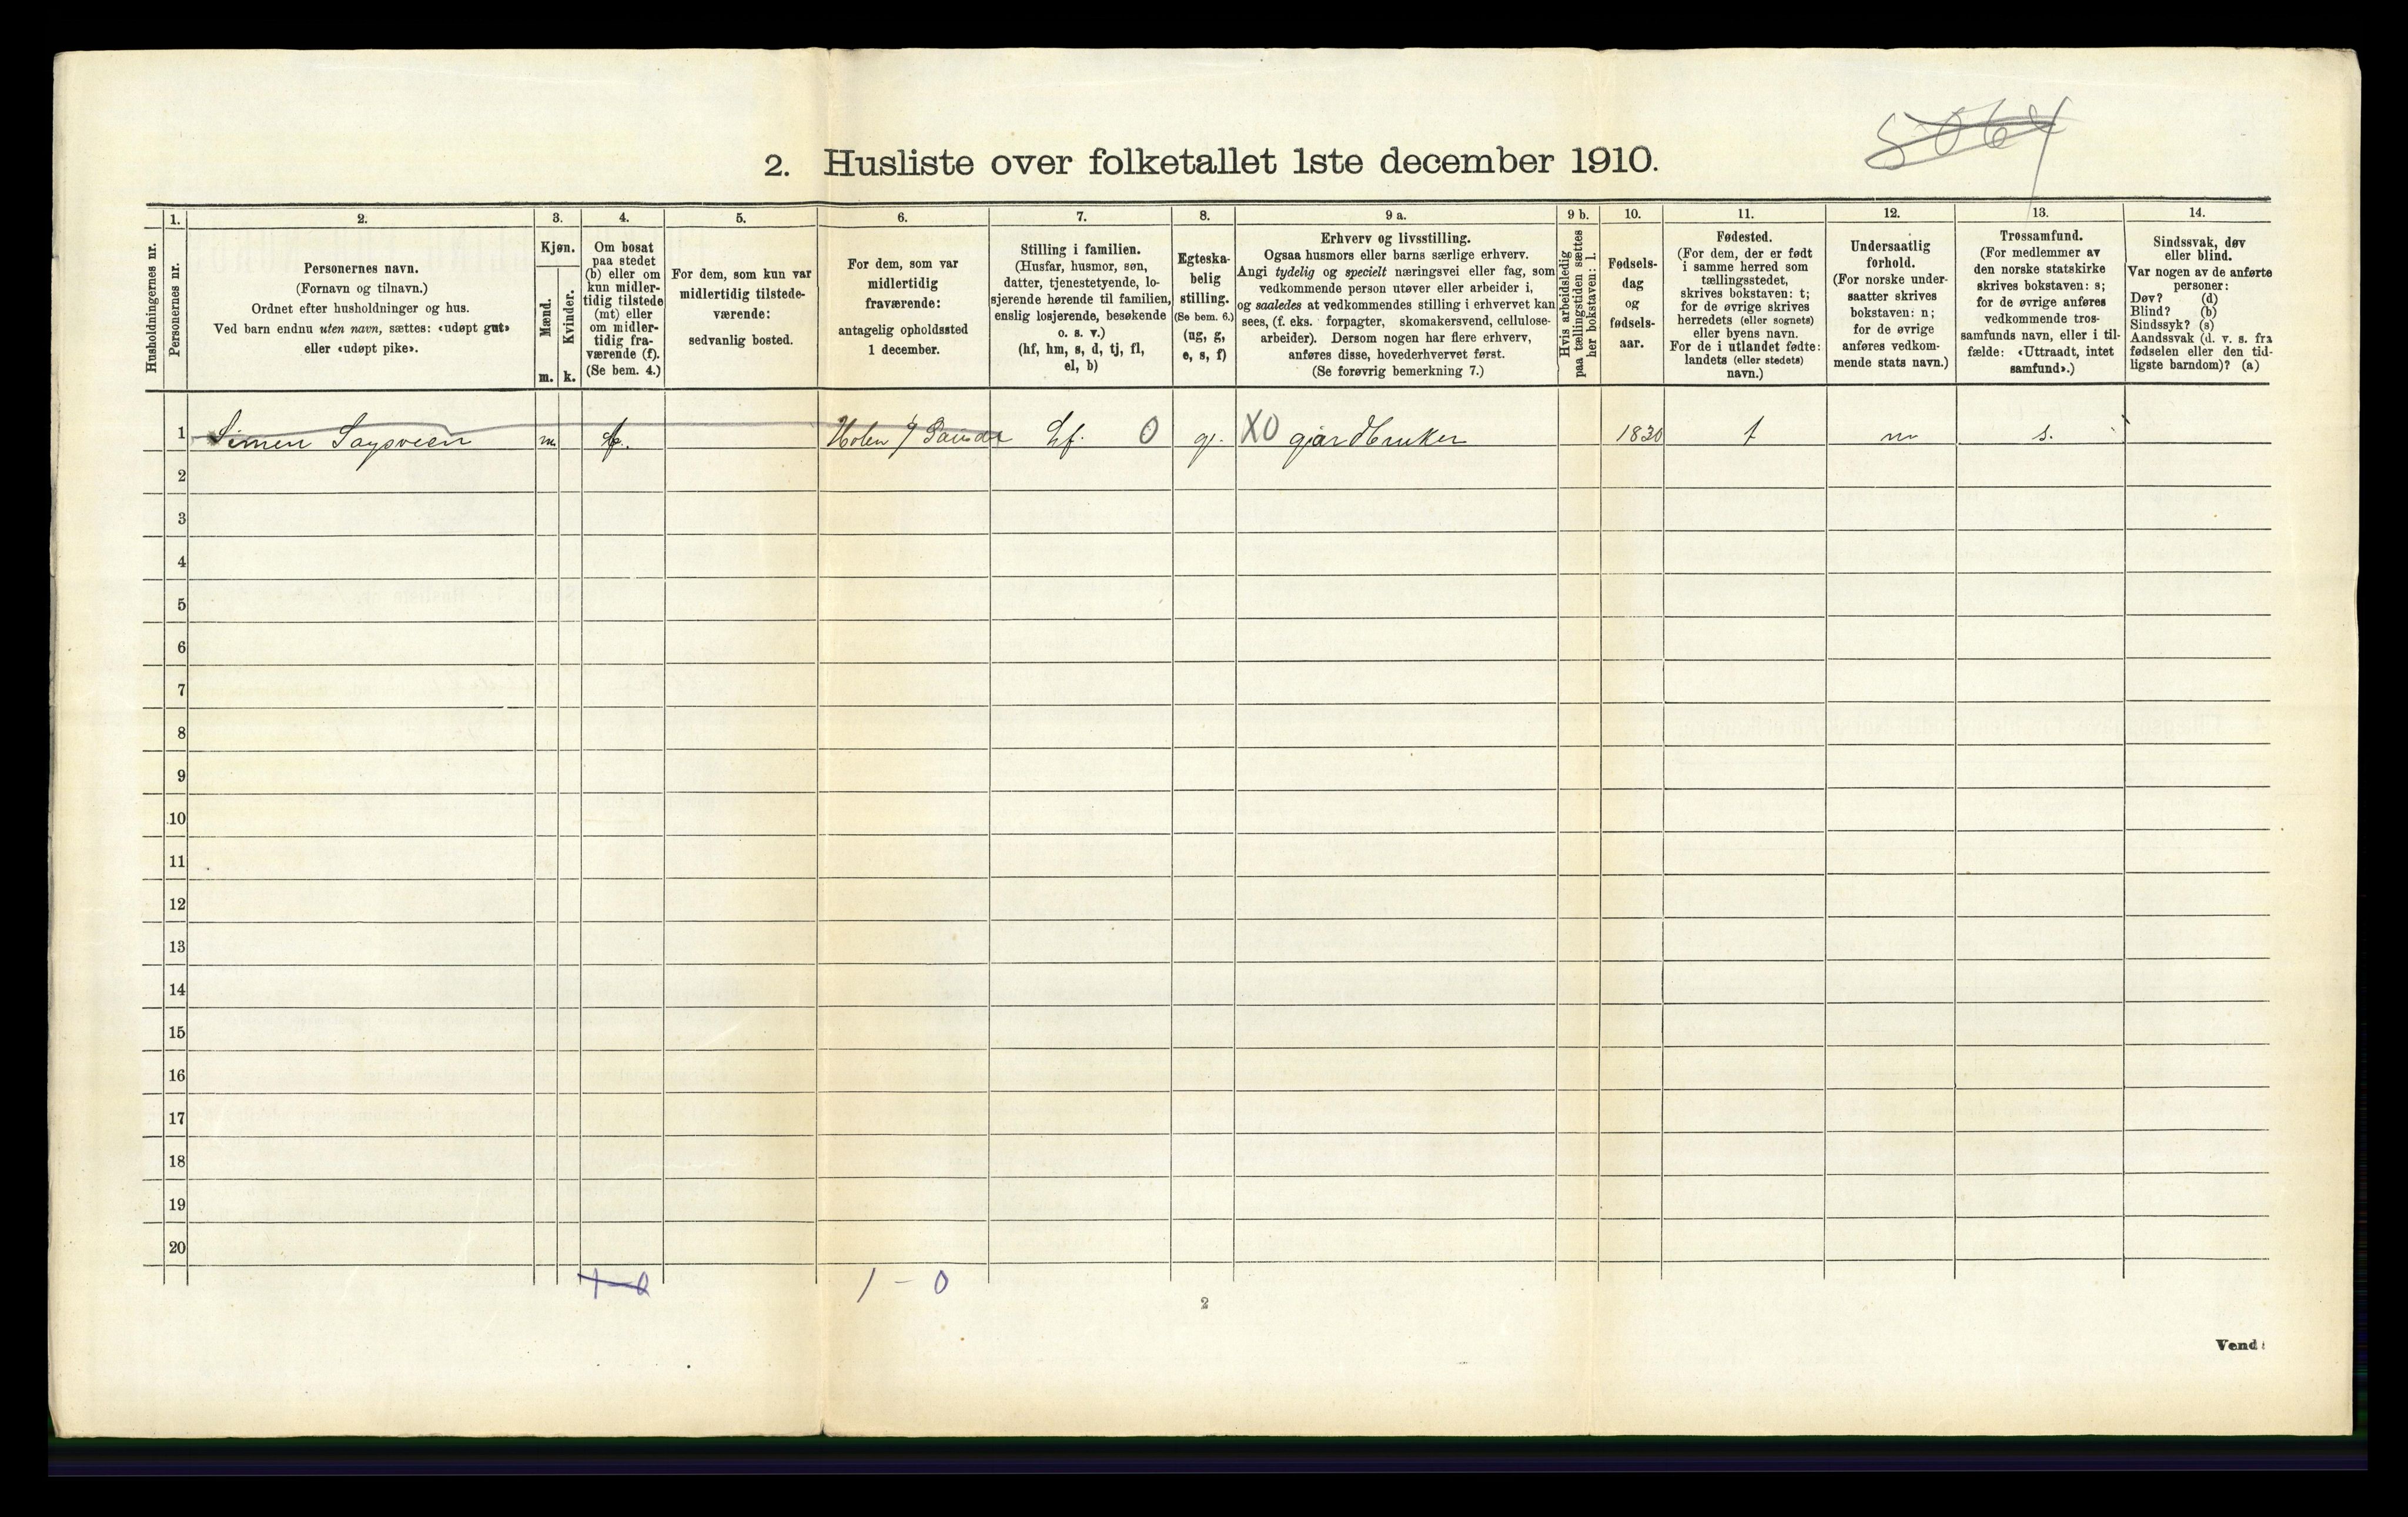 5064
2. Husliste over folketallet 1ste december 1910.
Husholdningernes nr.
1.
Personernes nr.
2.
Personernes navn.
(Fornavn og tilnavn.)
Ordnet efter husholdninger og hus.
Ved barn endnu uten navn, sættes: «udøpt gut»
eller «udøpt pike».
3.
Kjøn.
Mænd.
m.
Kvinder.
k.
4.
Om bosat
paa stedet
(b) eller om
kun midler-
tidig tilstede
(mt) eller
om midler-
tidig fra-
værende (f).
(Se bem. 4.)
5.
For dem, som kun var
midlertidig tilstede-
værende:
sedvanlig bosted.
6.
For dem, som var
midlertidig
fraværende:
antagelig opholdssted
1 december.
7.
Stilling i familien.
(Husfar, husmor, søn,
datter, tjenestetyende, lo-
sjerende hørende til familien,
enslig losjerende, besøkende
o. s. v.)
(hf, hm, s, d, tj, fl,
el, b)
8.
Egteska-
belig
stilling.
(Se bem. 6.)
(ug, g,
e, s, f)
9 a.
Erhverv og livsstilling.
Ogsaa husmors eller barns særlige erhverv.
Angi tydelig og specielt næringsvei eller fag, som
vedkommende person utøver eller arbeider i,
og saaledes at vedkommendes stilling i erhvervet kan
sees, (f. eks. forpagter, skomakersvend, cellulose-
arbeider). Dersom nogen har flere erhverv,
anføres disse, hovederhvervet først.
(Se forøvrig bemerkning 7.)
9 b.
Hvis arbeidsledig
paa tællingstiden sættes
her bokstaven: l.
10.
Fødsels-
dag
og
fødsels-
aar.
11.
Fødested.
(For dem, der er født
i samme herred som
tællingsstedet,
skrives bokstaven: t;
for de øvrige skrives
herredets (eller sognets)
eller byens navn.
For de i utlandet fødte:
landets (eller stedets)
navn.)
12.
Undersaatlig
forhold.
(For norske under-
saatter skrives
bokstaven: n;
for de øvrige
anføres vedkom-
mende stats navn.)
13.
Trossamfund.
(For medlemmer av
den norske statskirke
skrives bokstaven: s;
for de øvrige anføres
vedkommende tros-
samfunds navn, eller i til-
fælde: «Uttraadt, intet
samfund».)
14.
Sindssvak, døv
eller blind.
Var nogen av de anførte
personer:
Døv? (d)
Blind? (b)
Sindssyk? (s)
Aandssvak (d. v. s. fra
fødselen eller den tid-
ligste barndom)? (a)
1 Simen m f. Holen hf. 0 g. X0 gaardbruker 1830 t n s.
2
3
4
5
6
7
8
9
10
11
12
13
14
15
16
17
18
19
20
1-0 1 - 0
2
Vend!